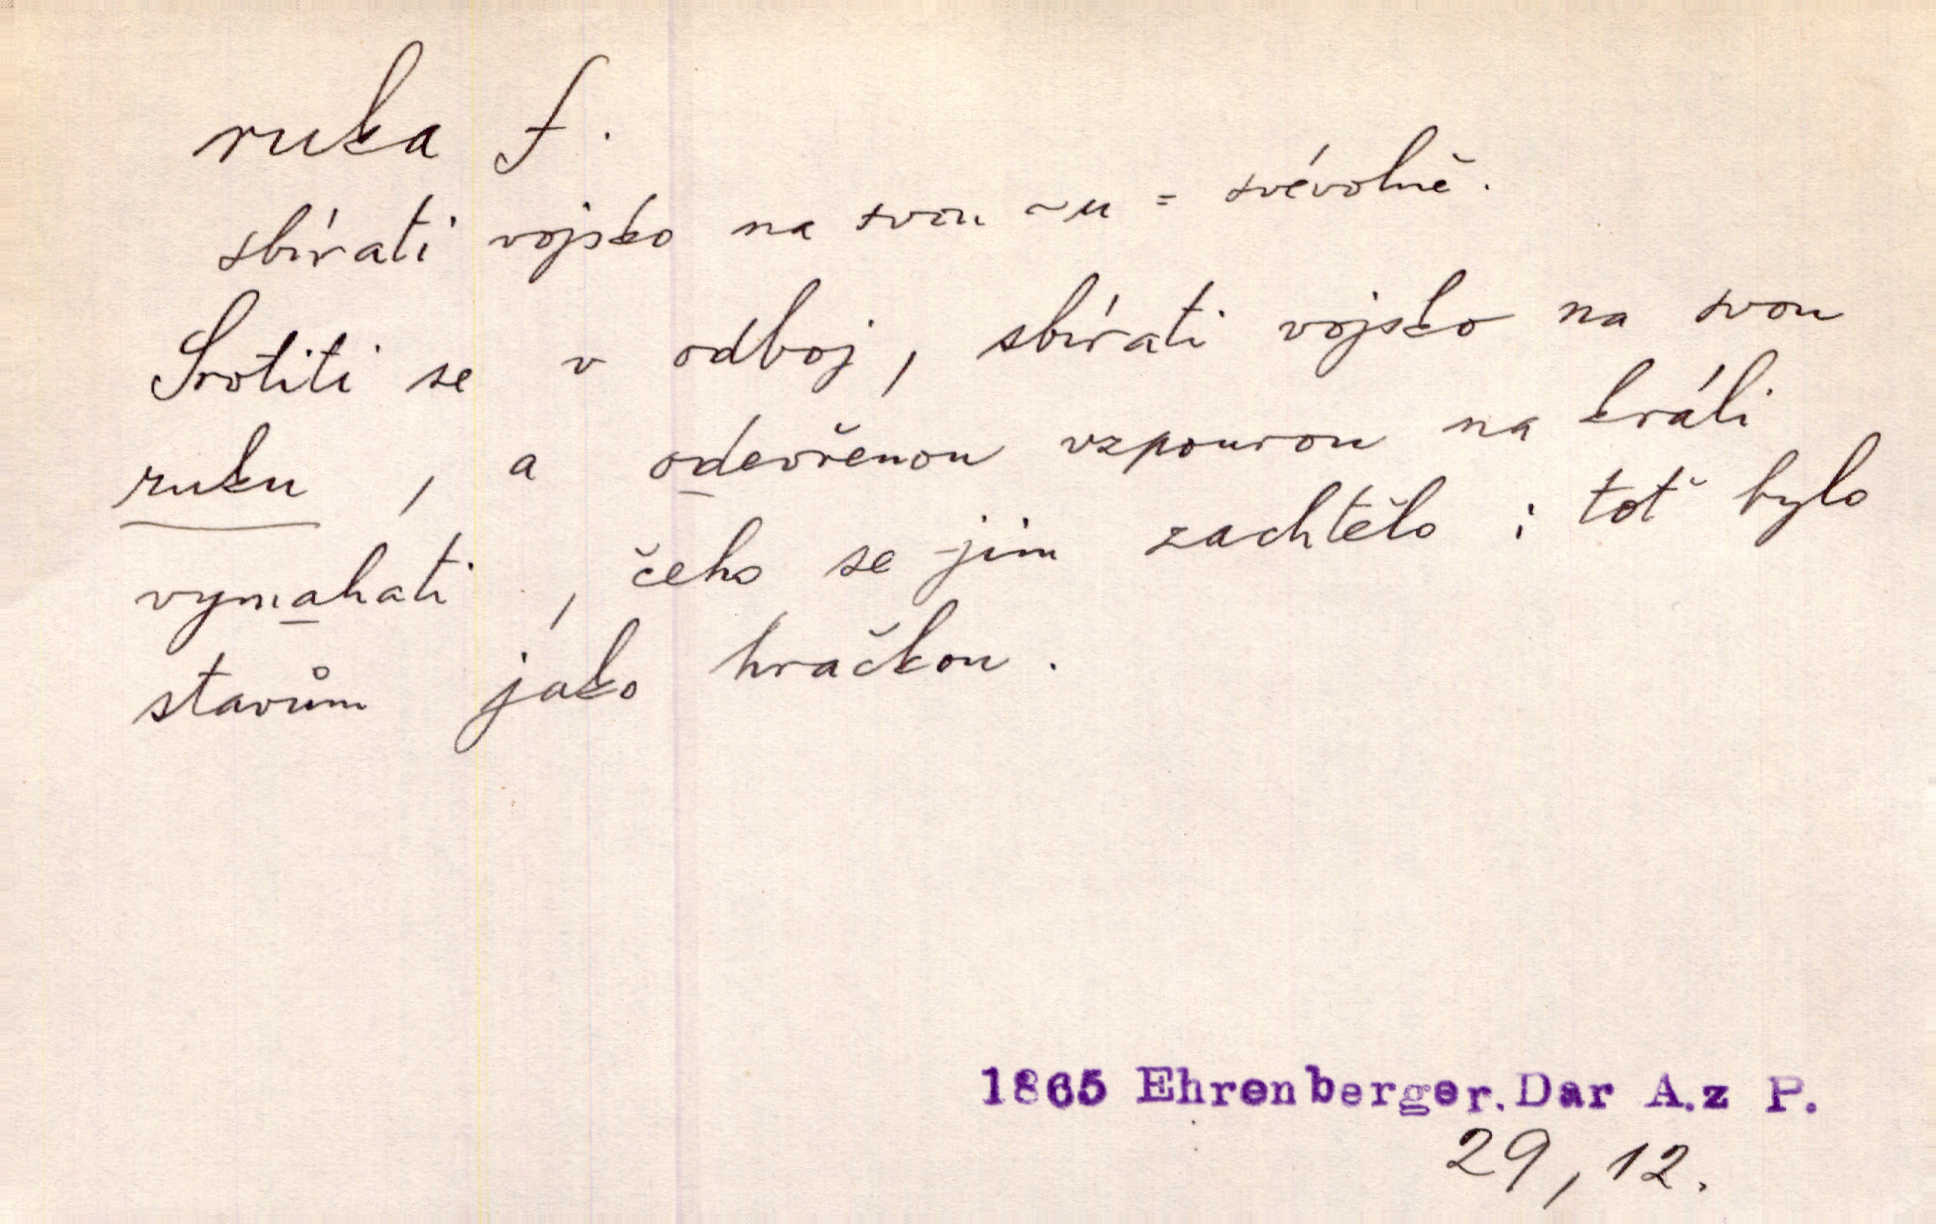 ruka f.
sbírati vojsko na svou ~u = svévolně.
Srotiti se v odboj, sbírati vojsko na svou
ruku, a odevřenou vzpourou na králi
vymahati, čeho se jim zachtělo; toť bylo
stavům jako hračkou.
1865 Ehrenberger. Dar A.z P.
29, 12.